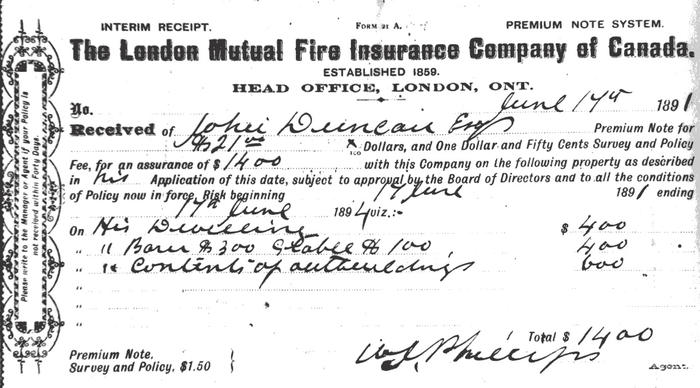 INTERIM RECEIPT. FORM 21 A. PREMIUM NOTE SYSTEM.
The London Mutual Fire Insurance Company of Canada.
ESTABLISHED 1859.
HEAD OFFICE, LONDON, ONT.
No. June 17th 1891
Received of John Duncan Esq Premium Note for
$21 00 Dollars, and One Dollar and Fifty Cents Survey and Policy
Fee, for an assurance of $1400 with this Company on the following property as described
in his Application of this date, subject to approval by the Board of Directors and to all the conditions
of Policy now in force. Risk beginning 17 June 1891 ending
17th June 1894 viz:-
On His Dwelling $ 400
" " Barn $300 Stable $100 400
" " Contents of outbuildings 600
"
"
"
Total $ 1400
Premium Note.
Survey and Policy, $1.50 Phillips Agent.
Please write to the Manager or Agent if your Policy is
not received within Forty Days.